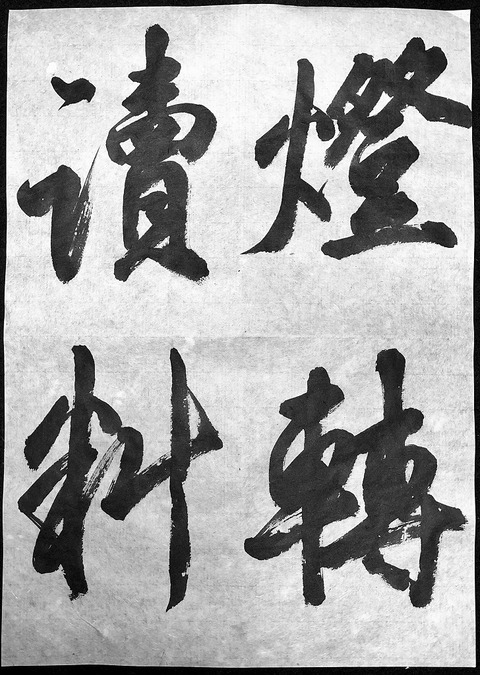 燈轉
讀料